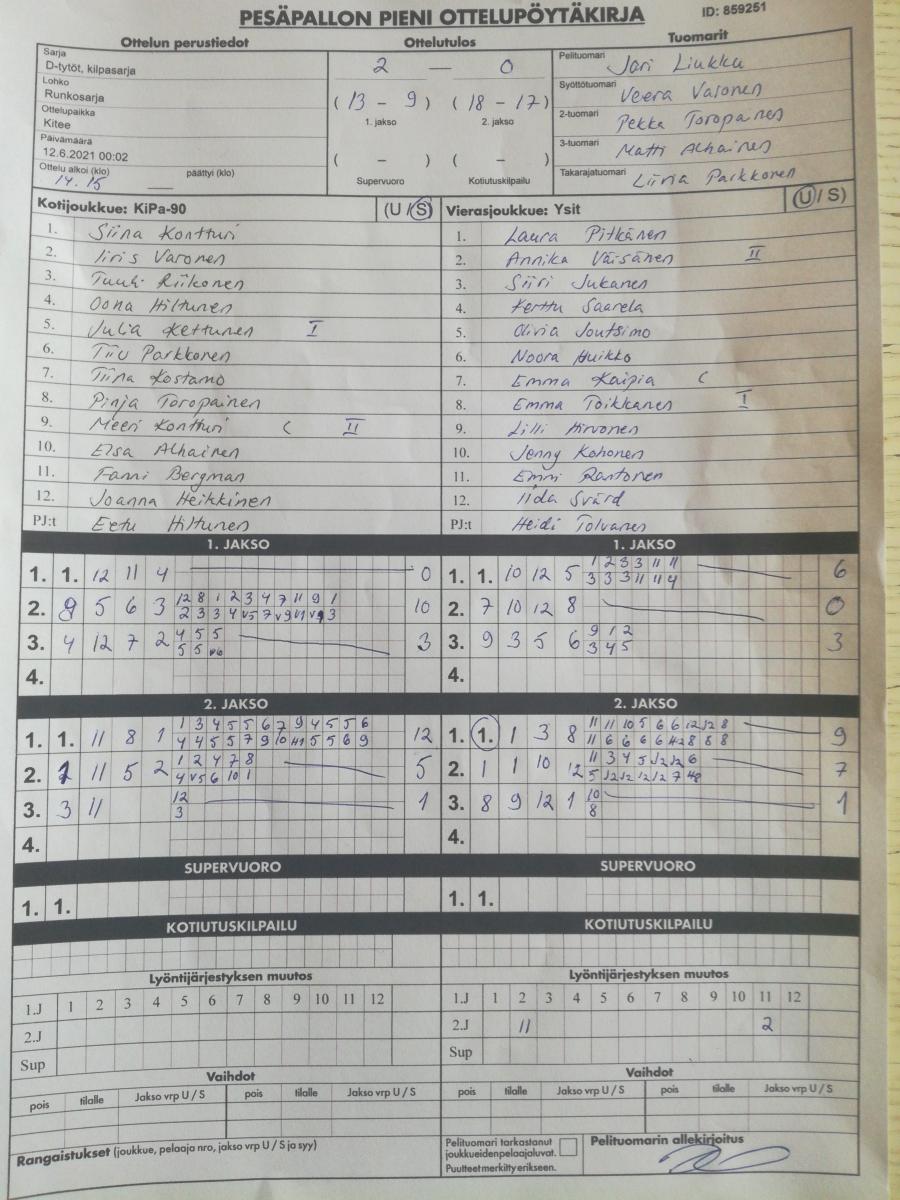 PESÄPALLON PIENI OTTELUPÖYTÄKIRJA
ID: 859251
Ottelun perustiedot
Ottelutulos
Tuomarit
Sarja
D-tytöt, kilpasarja
Lohko
Runkosarja
Ottelupaikka
Kitee
Päivämäärä
12.6.2021 00:02
Ottelu alkoi (klo) päättyi (klo)
14.15
2 — 0
( 13 - 9 ) ( 18 - 17 )
1. jakso 2. jakso
( - ) ( - )
Supervuoro Kotiutuskilpailu
Pelituomari Jari Liukku
Syöttötuomari Veera Varonen
2-tuomari Pekka Toropainen
3-tuomari Matti Alhainen
Takarajatuomari Liivia Parkkonen
Kotijoukkue: KiPa-90 (U / S)
1. Siina Kontturi
2. Iiris Varonen
3. Tuuli Riikonen
4. Oona Hiltunen
5. Julia Kettunen I
6. Tiiu Parkkonen
7. Tiina Kostamo
8. Pinja Toropainen
9. Meeri Kontturi C II
10. Elsa Alhainen
11. Fanni Bergman
12. Joanna Heikkinen
PJ:t Eetu Hiltunen
Vierasjoukkue: Ysit (U / S)
1. Laura Pitkänen
2. Annika Väisänen II
3. Siiri Jukanen
4. Kerttu Saarela
5. Olivia Joutsimo
6. Noora Huikko
7. Emma Kaipia C
8. Emma Toikkanen I
9. Lilli Hirvonen
10. Jenny Kohonen
11. Emmi Rantonen
12. Iida Svärd
PJ:t Heidi Tolvanen
1. JAKSO
1. 1. 12 11 4 0
2. 9 5 6 3 12 8 1 2 3 4 7 11 9 1 10
2 3 3 4 v5 7 v9
3. 4 12 7 2 4 5 5 3
5 5 v6
4.
1. JAKSO
1. 1. 10 12 5 1 2 3 3 11 11 6
3 3 3 11 11 4
2. 7 10 12 8 0
3. 9 3 5 6 9 1 2 3
3 4 5
4.
2. JAKSO
1. 1. 11 8 1 1 3 4 5 5 6 7 9 4 5 5 6 12
4 4 5 5 7 9 10 5 5 6 9
2. 11 5 2 1 2 4 7 8 5
4 v5 6 10 1
3. 3 11 12 1
3
4.
2. JAKSO
1. 1. 1 3 8 11 11 10 5 6 6 12 12 8 9
11 6 6 6 6 8 8 8
2. 1 1 10 12 11 3 4 5 12 12 6 7
5 12 12 12 12 7
3. 8 9 12 1 10 1
8
4.
SUPERVUORO
1. 1.
SUPERVUORO
1. 1.
KOTIUTUSKILPAILU
KOTIUTUSKILPAILU
Lyöntijärjestyksen muutos
1.J 1 2 3 4 5 6 7 8 9 10 11 12
2.J
Sup
Lyöntijärjestyksen muutos
1.J 1 2 3 4 5 6 7 8 9 10 11 12
2.J 11 2
Sup
Vaihdot
pois tilalle Jakso vrp U / S pois tilalle Jakso vrp U / S
Vaihdot
pois tilalle Jakso vrp U / S pois tilalle Jakso vrp U / S
Rangaistukset (joukkue, pelaaja nro, jakso vrp U / S ja syy)
Pelituomari tarkastanut
joukkueidenpelaajaluvat.
Puutteetmerkittyerikseen.
Pelituomarin allekirjoitus